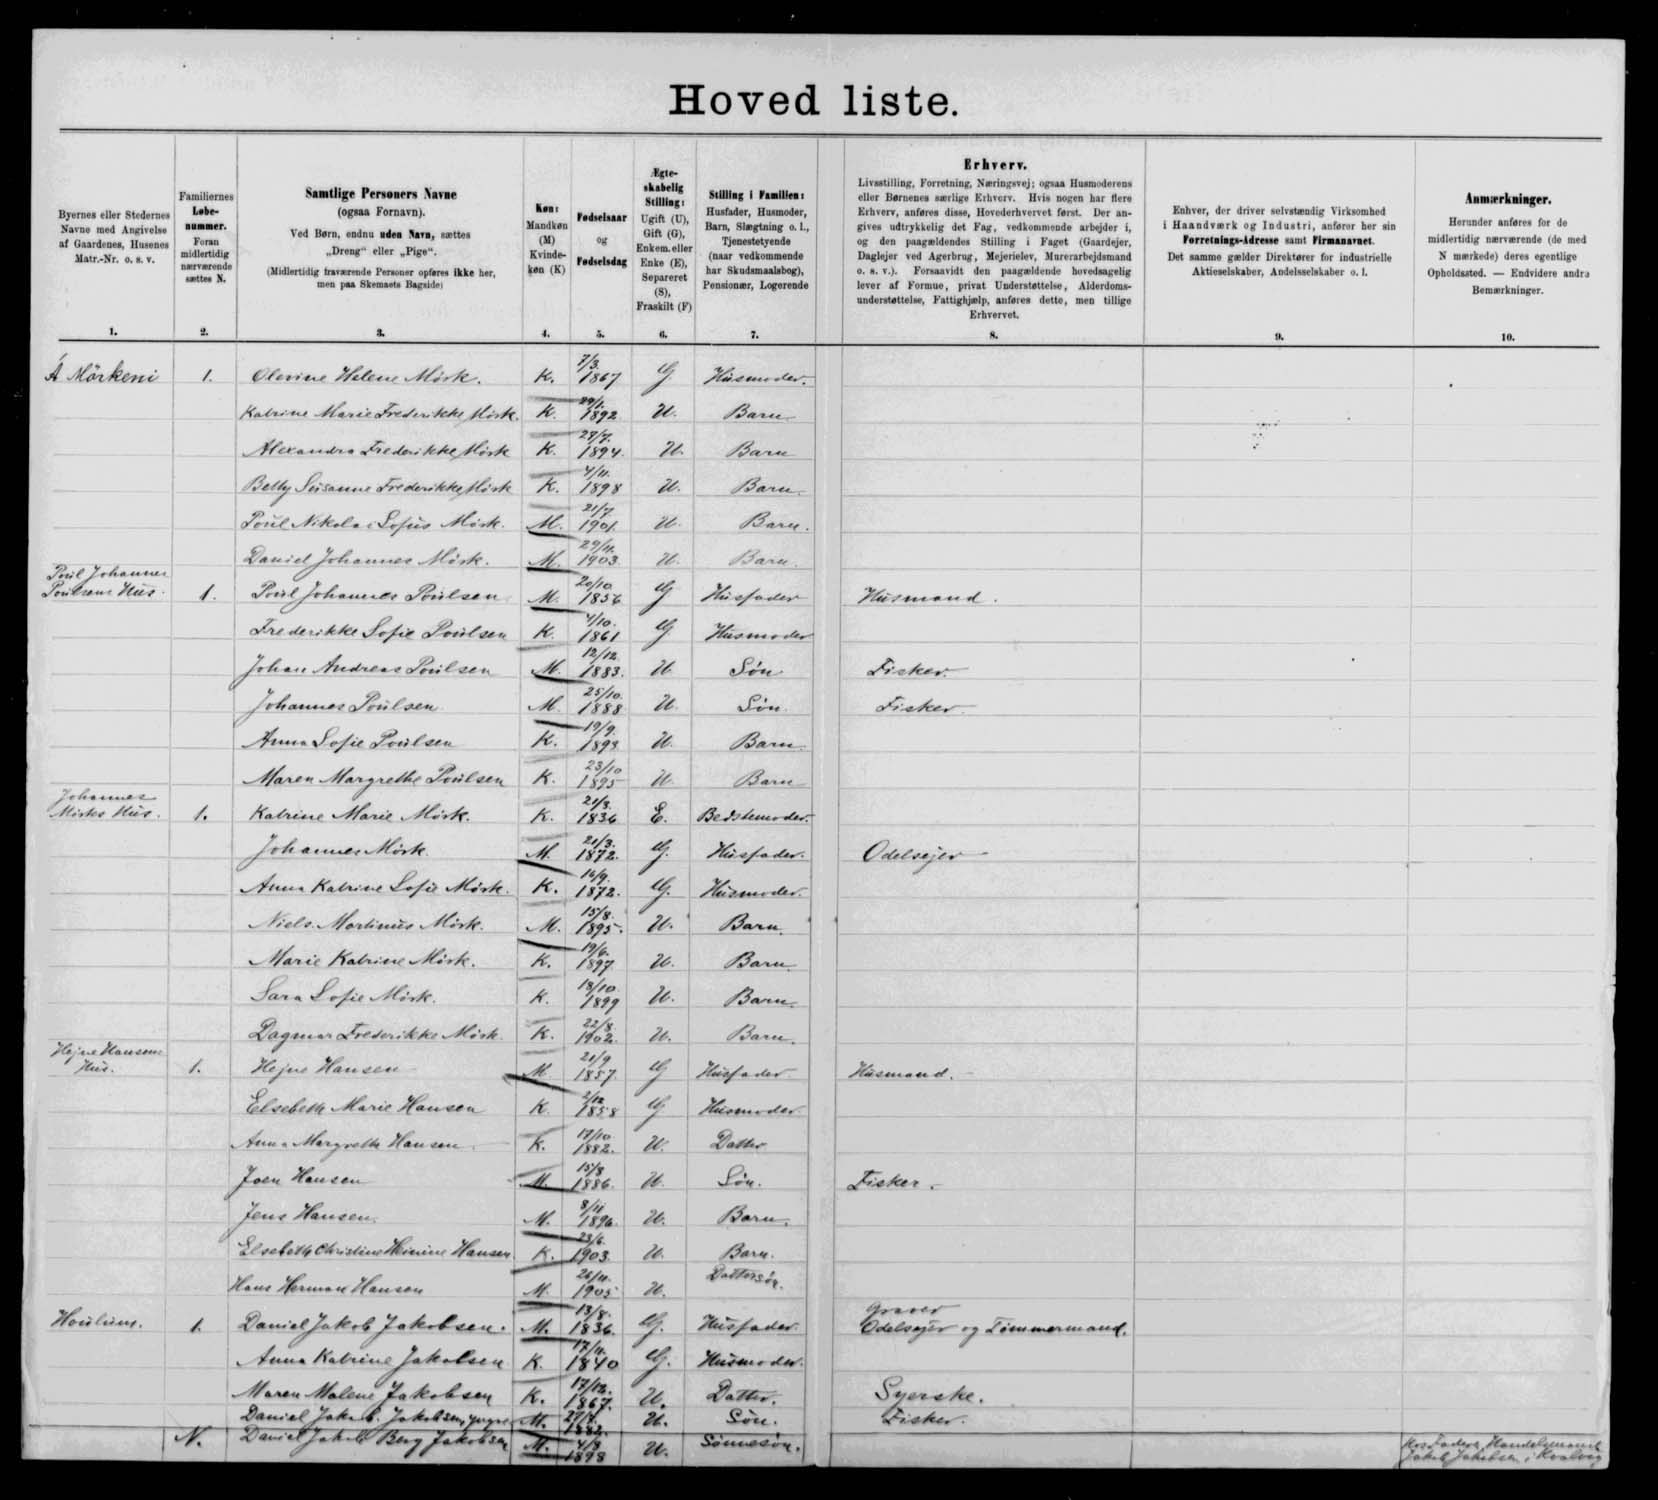 Hovedliste.
Byernes eller Stedernes
Navne med Angivelse
af Gaardenes, Husenes
Matr.-Nr. o. s. v.
1.
Familiernes
Løbe-
nummer.
Foran
midlertidig
nærværende
sættes N.
2.
Samtlige Personers Navne
(ogsaa Fornavn).
Ved Børn, endnu uden Navn, sættes
„Dreng“ eller „Pige“.
(Midlertidig fraværende Personer opføres ikke her,
men paa Skemaets Bagside)
3.
Køn:
Mandkøn
(M)
Kvinde-
køn (K)
4.
Fødselsaar
og
Fødselsdag
5.
Ægte-
skabelig
Stilling:
Ugift (U),
Gift (G),
Enkem. eller
Enke (E),
Separeret
(S),
Fraskilt (F)
6.
Stilling i Familien:
Husfader, Husmoder,
Barn, Slægtning o. l.,
Tjenestetyende
(naar vedkommende
har Skudsmaalsbog),
Pensionær, Logerende
7.
Erhverv.
Livsstilling, Forretning, Næringsvej; ogsaa Husmoderens
eller Børnenes særlige Erhverv. Hvis nogen har flere
Erhverv, anføres disse, Hovederhvervet først. Der an-
gives udtrykkelig det Fag, vedkommende arbejder i,
og den paagældendes Stilling i Faget (Gaardejer,
Daglejer ved Agerbrug, Mejerielev, Murerarbejdsmand
o. s. v.). Forsaavidt den paagældende hovedsagelig
lever af Formue, privat Understøttelse, Alderdoms-
understøttelse, Fattighjælp, anføres dette, men tillige
Erhvervet.
8.
Enhver, der driver selvstændig Virksomhed
i Haandværk og Industri, anfører her sin
Forretnings-Adresse samt Firmanavnet.
Det samme gælder Direktører for industrielle
Aktieselskaber, Andelsselskaber o. l.
9.
Anmærkninger.
Herunder anføres for de
midlertidig nærværende (de med
N mærkede) deres egentlige
Opholdssted. — Endvidere andra
Bemærkninger.
10.
Á Mörkeni 1. Olevine Helene Mörk. K. 7/3. 1867 G Husmoder.
Katrine Marie Frederikke Mörk. K. 29/1. 1892 U. Barn
Alexandra Frederikke Mörk K. 27/7. 1894. U. Barn
Betty Susanne Frederikke Mörk K. 4/11. 1898 U. Barn.
Poul Nikolai Sofus Mörk. M. 21/7 1901. U. Barn.
Daniel Johannes Mörk. M. 29/11. 1903 U. Barn.
Poul Johannes
Poulsens Hus. 1. Poul Johannes Poulsen M. 20/10 1856 G Husfader Husmand.
Frederikke Sofie Poulsen K. 4/10. 1861 G Husmoder
Johan Andreas Poulsen M. 12/12 1883. U. Søn Fisker.
Johannes Poulsen M. 25/10. 1888 U. Søn. Fisker.
Anna Sofie Poulsen K. 19/9. 1893 U. Barn.
Maren Margrethe Poulsen K. 23/10 1895 U. Barn
Johannes
Mörks Hus. 1. Katrine Marie Mörk. K. 21/3. 1836 E. Bedstemoder.
Johannes Mörk. M. 21/3. 1872. G. Husfader. Odelsejer
Anna Katrine Sofie Mörk. K. 16/9. 1872. G. Husmoder.
Niels Martinus Mörk. M. 15/8. 1895. U. Barn.
Marie Katrine Mörk. K. 19/6. 1897 U. Barn.
Sara Sofie Mörk. K. 18/10. 1899 U. Barn.
Dagmar Frederikke Mörk. K. 22/8. 1902. U. Barn.
Hejne Hansens
Hus. 1. Hejne Hansen M. 21/9 1857. G Husfader Husmand.
Elsebeth Marie Hansen K. 2/12 1858 G Husmoder
Anna Margrethe Hansen K. 17/10. 1882. U. Datter
Joen Hansen M. 15/8 1886. U. Søn. Fisker.
Jens Hansen. M. 8/11 1896. U. Barn.
Elsebeth Christine Heinine Hansen. K. 23/6. 1903. U. Barn.
Hans Herman Hansen M. 26/11. 1905 U. Dattersøn.
Houlum. 1. Daniel Jakob Jakobsen. M. 13/8. 1836. G. Husfader. Graver
Odelsejer og Tömmermand.
Anna Katrine Jakobsen K. 17/11. 1840 G. Husmoder.
Maren Malene Jakobsen K. 17/12. 1867. U. Datter. Syerske.
Daniel Jakob Jakobsen, yngre M. 1882. U. Søn. Fisker.
N. Daniel Jakob Berg Jakobsen M. 4/8 1898 U. Sønnesøn. Hos Fadere, Handelsmand
Jakob Jakobsen i Kvalvig